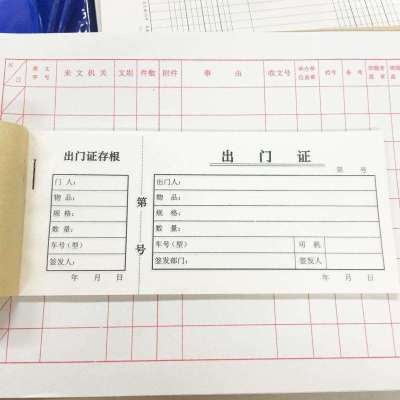 来文字号 来文机关 文别 件数 附件 事由 收文号 承办单位 卷号 备考
月 日
出门证存根
门人：
物品：
规格：
数量：
车号(型)
签发人：
年 月 日
第 号
出门证
第 号
出门人：
物品：
规格：
数量：
车号(型) 司机
签发部门： 签发人
年 月 日